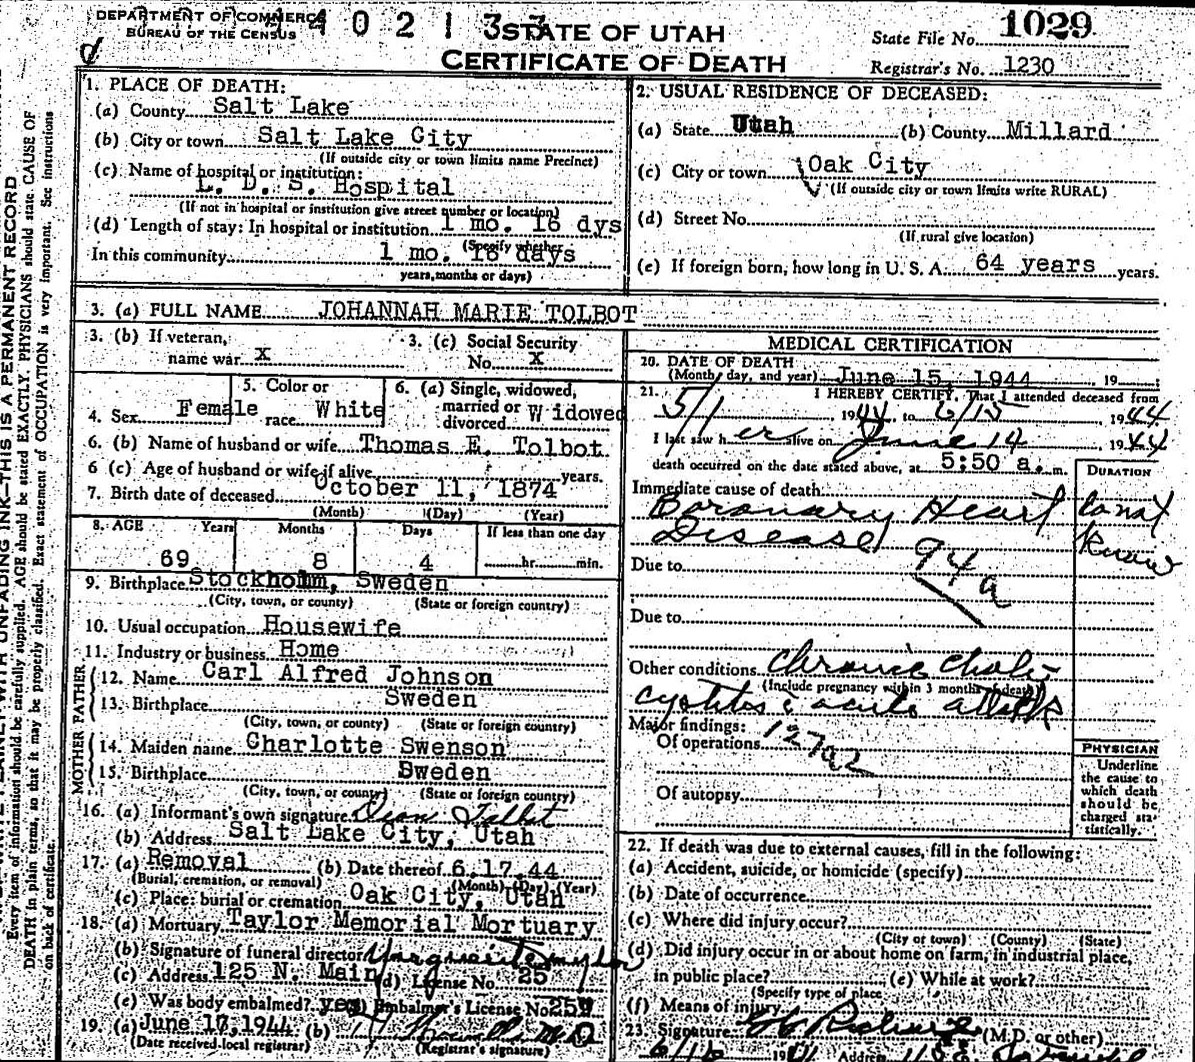 DEPARTMENT OF COMMERCE
BUREAU OF THE CENSUS
4 0 2 1 3
STATE OF UTAH
CERTIFICATE OF DEATH
State File No. 1029
Registrar's No. 1230
1. PLACE OF DEATH:
(a) County Salt Lake
(b) City or town Salt Lake City
(If outside city or town limits name Precinct)
(c) Name of hospital or institution:
L. D. S. Hospital
(If not in hospital or institution give street number or location)
(d) Length of stay: In hospital or institution 1 mo. 16 dys
(Specify whether
In this community 1 mo. 16 days
years, months or days)
2. USUAL RESIDENCE OF DECEASED:
(a) State Utah (b) County Millard
(c) City or town Oak City
(If outside city or town limits write RURAL)
(d) Street No.
(If rural give location)
(e) If foreign born, how long in U. S. A. 64 years years.
3. (a) FULL NAME JOHANNAH MARIE TOLBOT
3. (b) If veteran,
name war X
3. (c) Social Security
No. X
4. Sex Female
5. Color or
race White
6. (a) Single, widowed,
married or
divorced Widowed
6. (b) Name of husband or wife Thomas E. Tolbot
6 (c) Age of husband or wife if alive years.
7. Birth date of deceased October 11, 1874
(Month) (Day) (Year)
8. AGE Years Months Days If less than one day
69 8 4 hr. min.
9. Birthplace Stockholm, Sweden
(City, town, or county) (State or foreign country)
10. Usual occupation Housewife
11. Industry or business Home
FATHER
12. Name Carl Alfred Johnson
13. Birthplace Sweden
(City, town, or county) (State or foreign country)
MOTHER
14. Maiden name Charlotte Swenson
15. Birthplace Sweden
(City, town, or county) (State or foreign country)
16. (a) Informant's own signature Dean Talbot
(b) Address Salt Lake City, Utah
17. (a) Removal (b) Date thereof 6.17.44
(Burial, cremation, or removal) (Month) (Day) (Year)
(c) Place: burial or cremation Oak City, Utah
18. (a) Mortuary Taylor Memorial Mortuary
(b) Signature of funeral director
(c) Address 125 N. Main (d) License No. 25
(e) Was body embalmed? yes Embalmer's License No. 259
19. (a) June 17, 1944 (b) M.D
(Date received local registrar) (Registrar's signature)
MEDICAL CERTIFICATION
20. DATE OF DEATH
(Month, day, and year) June 15, 1944 19
21. I HEREBY CERTIFY, That I attended deceased from
5/1 1944 to 6/15, 1944
I last saw her alive on June 14 1944
death occurred on the date stated above, at 5:50 a. m.
DURATION
Immediate cause of death
Coronary Heart
Disease
know
94a
Due to
Due to
Other conditions Chronic Chole-
(Include pregnancy within 3 months of death)
cystitis & acute attack
Major findings:
Of operations
Of autopsy
PHYSICIAN
Underline
the cause to
which death
should be
charged sta-
tistically.
22. If death was due to external causes, fill in the following:
(a) Accident, suicide, or homicide (specify)
(b) Date of occurrence
(c) Where did injury occur?
(City or town) (County) (State)
(d) Did injury occur in or about home on farm, in industrial place,
in public place? (e) While at work?
(Specify type of place
(f) Means of injury
23. Signature (M.D. or other)
Address
UNFADING INK—THIS IS A PERMANENT RECORD
Every item of information should be carefully supplied. AGE should be stated EXACTLY. PHYSICIANS should state CAUSE OF
DEATH in plain terms, so that it may be properly classified. Exact statement of OCCUPATION is very important. See instructions
on back of certificate.